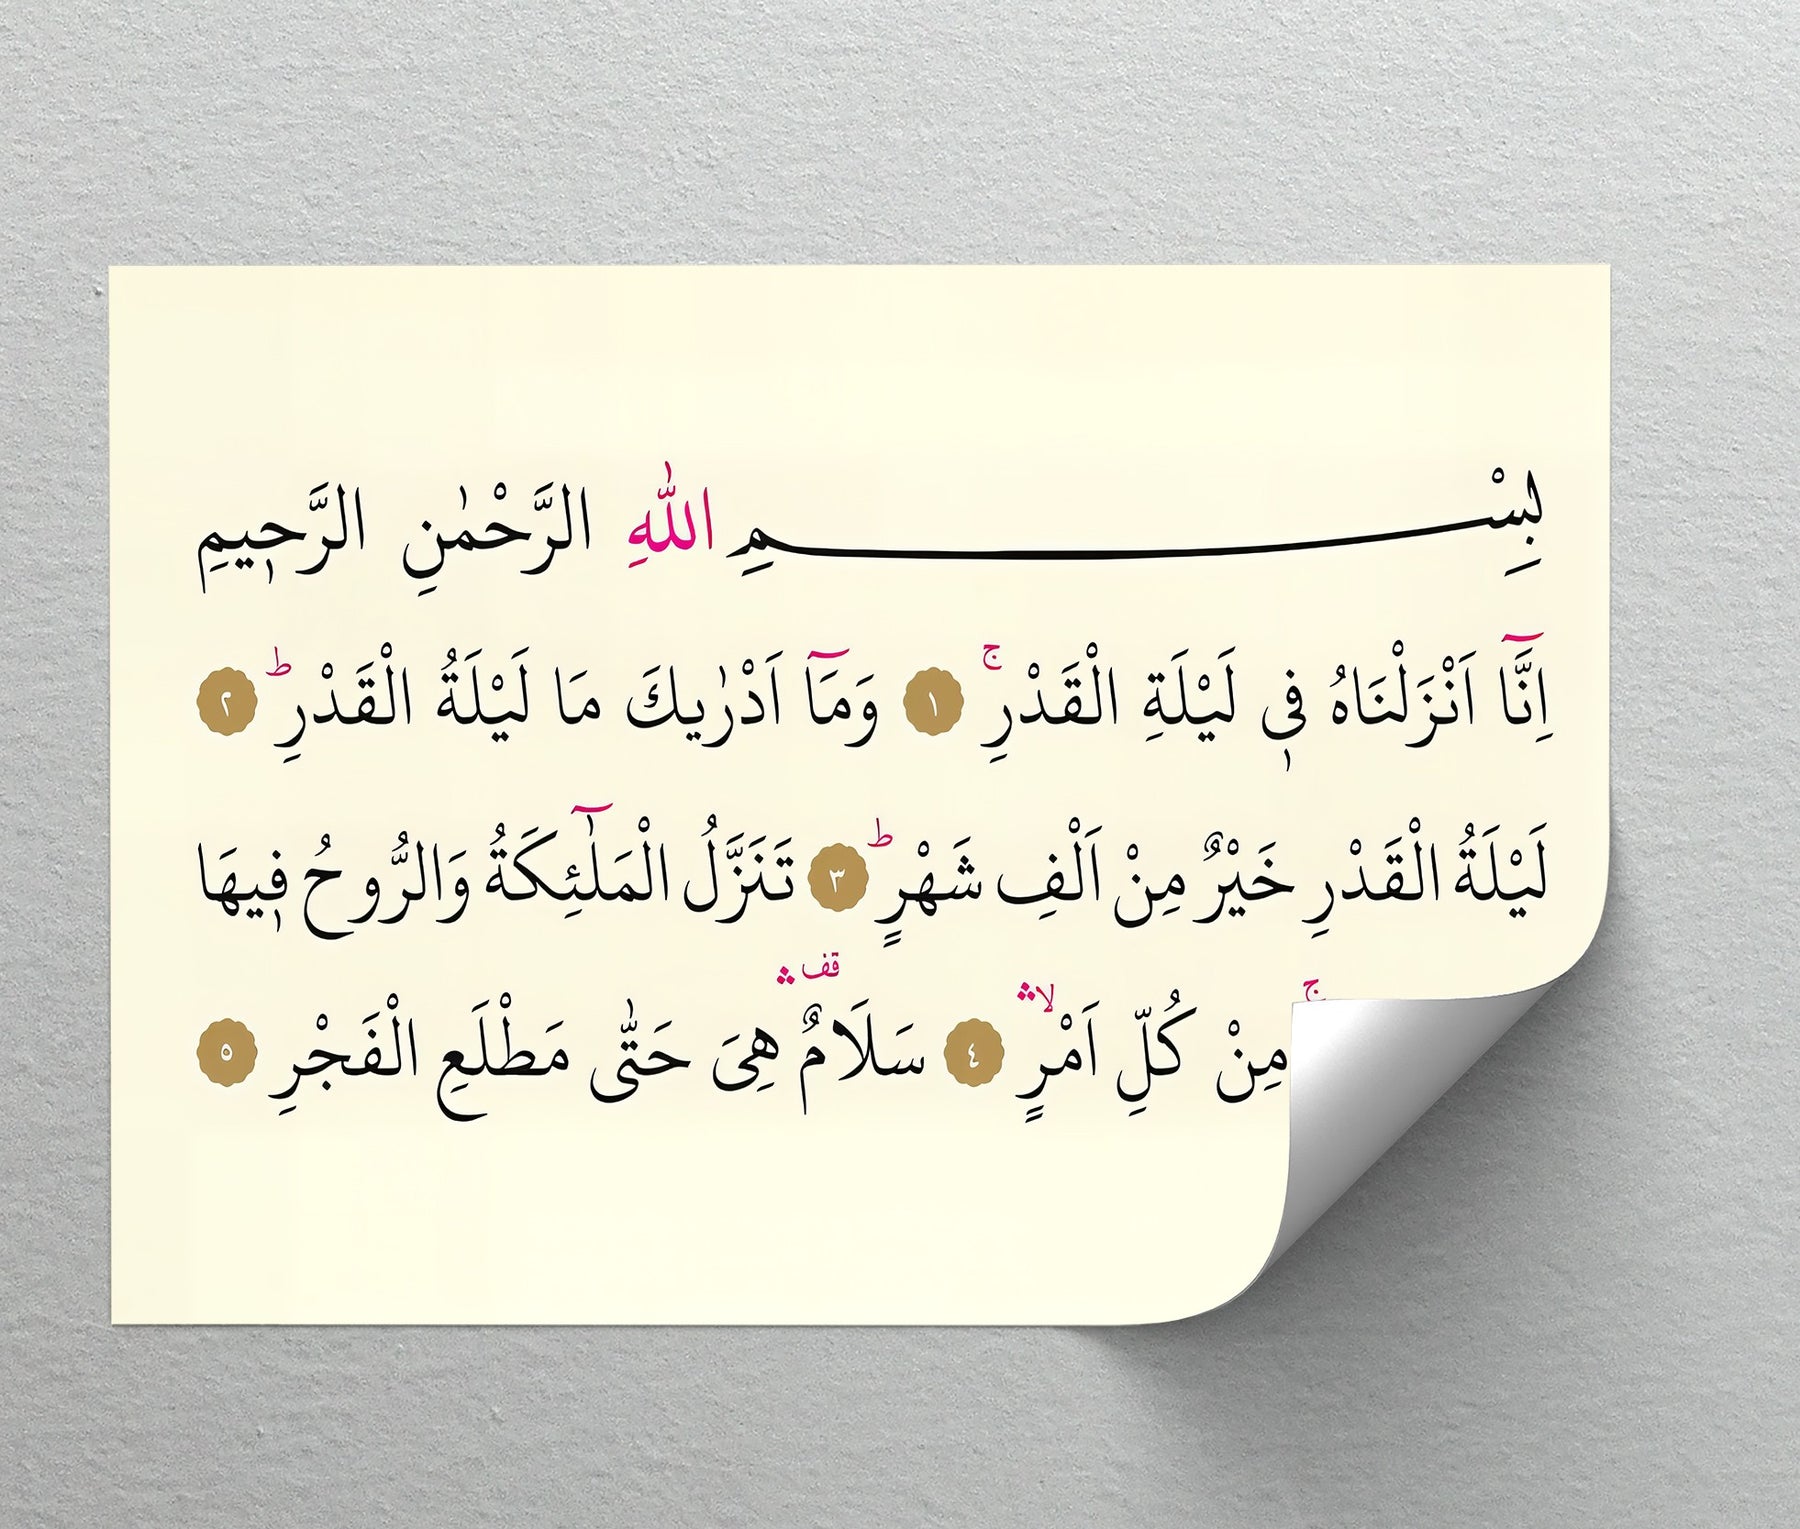 بِسْمِ اللّٰهِ الرَّحْمٰنِ الرَّحٖيمِ
اِنَّٓا اَنْزَلْنَاهُ فٖى لَيْلَةِ الْقَدْرِ ۚ ١ وَمَٓا اَدْرٰيكَ مَا لَيْلَةُ الْقَدْرِ ۜط ٢
لَيْلَةُ الْقَدْرِ خَيْرٌ مِنْ اَلْفِ شَهْرٍ ط ٣ تَنَزَّلُ الْمَلٰٓئِكَةُ وَالرُّوحُ فٖيهَا
ج مِنْ كُلِّ اَمْرٍ ۙۛ ٤ سَلَامٌ قف ۛ هِىَ حَتّٰى مَطْلَعِ الْفَجْرِ ٥